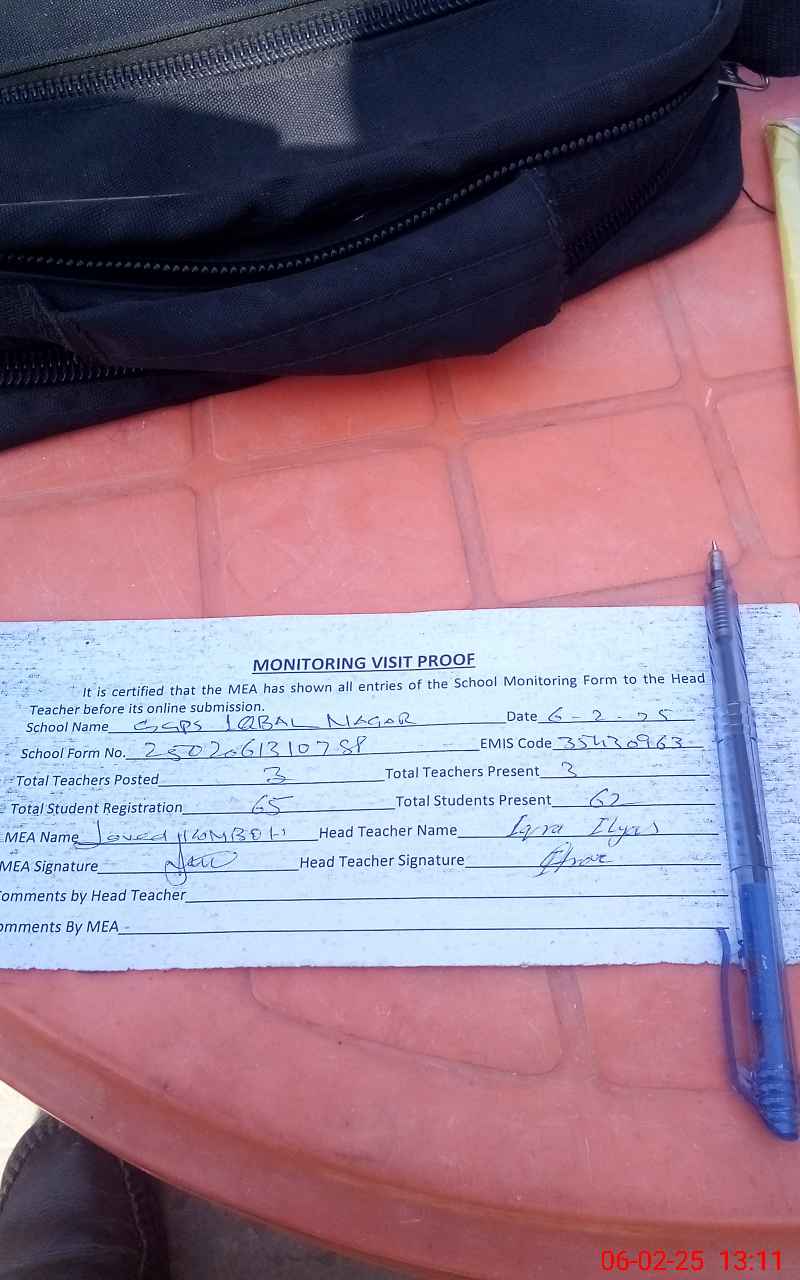 MONITORING VISIT PROOF
It is certified that the MEA has shown all entries of the School Monitoring Form to the Head
Teacher before its online submission.
School Name GGPS IQBAL NAGAR Date 6-2-25
School Form No. EMIS Code 35430963
Total Teachers Posted 3 Total Teachers Present 3
Total Student Registration 65 Total Students Present 62
MEA Name Javed KAMBOH Head Teacher Name Iqra Ilyas
MEA Signature Head Teacher Signature
omments by Head Teacher
omments By MEA -
06-02-25 13:11